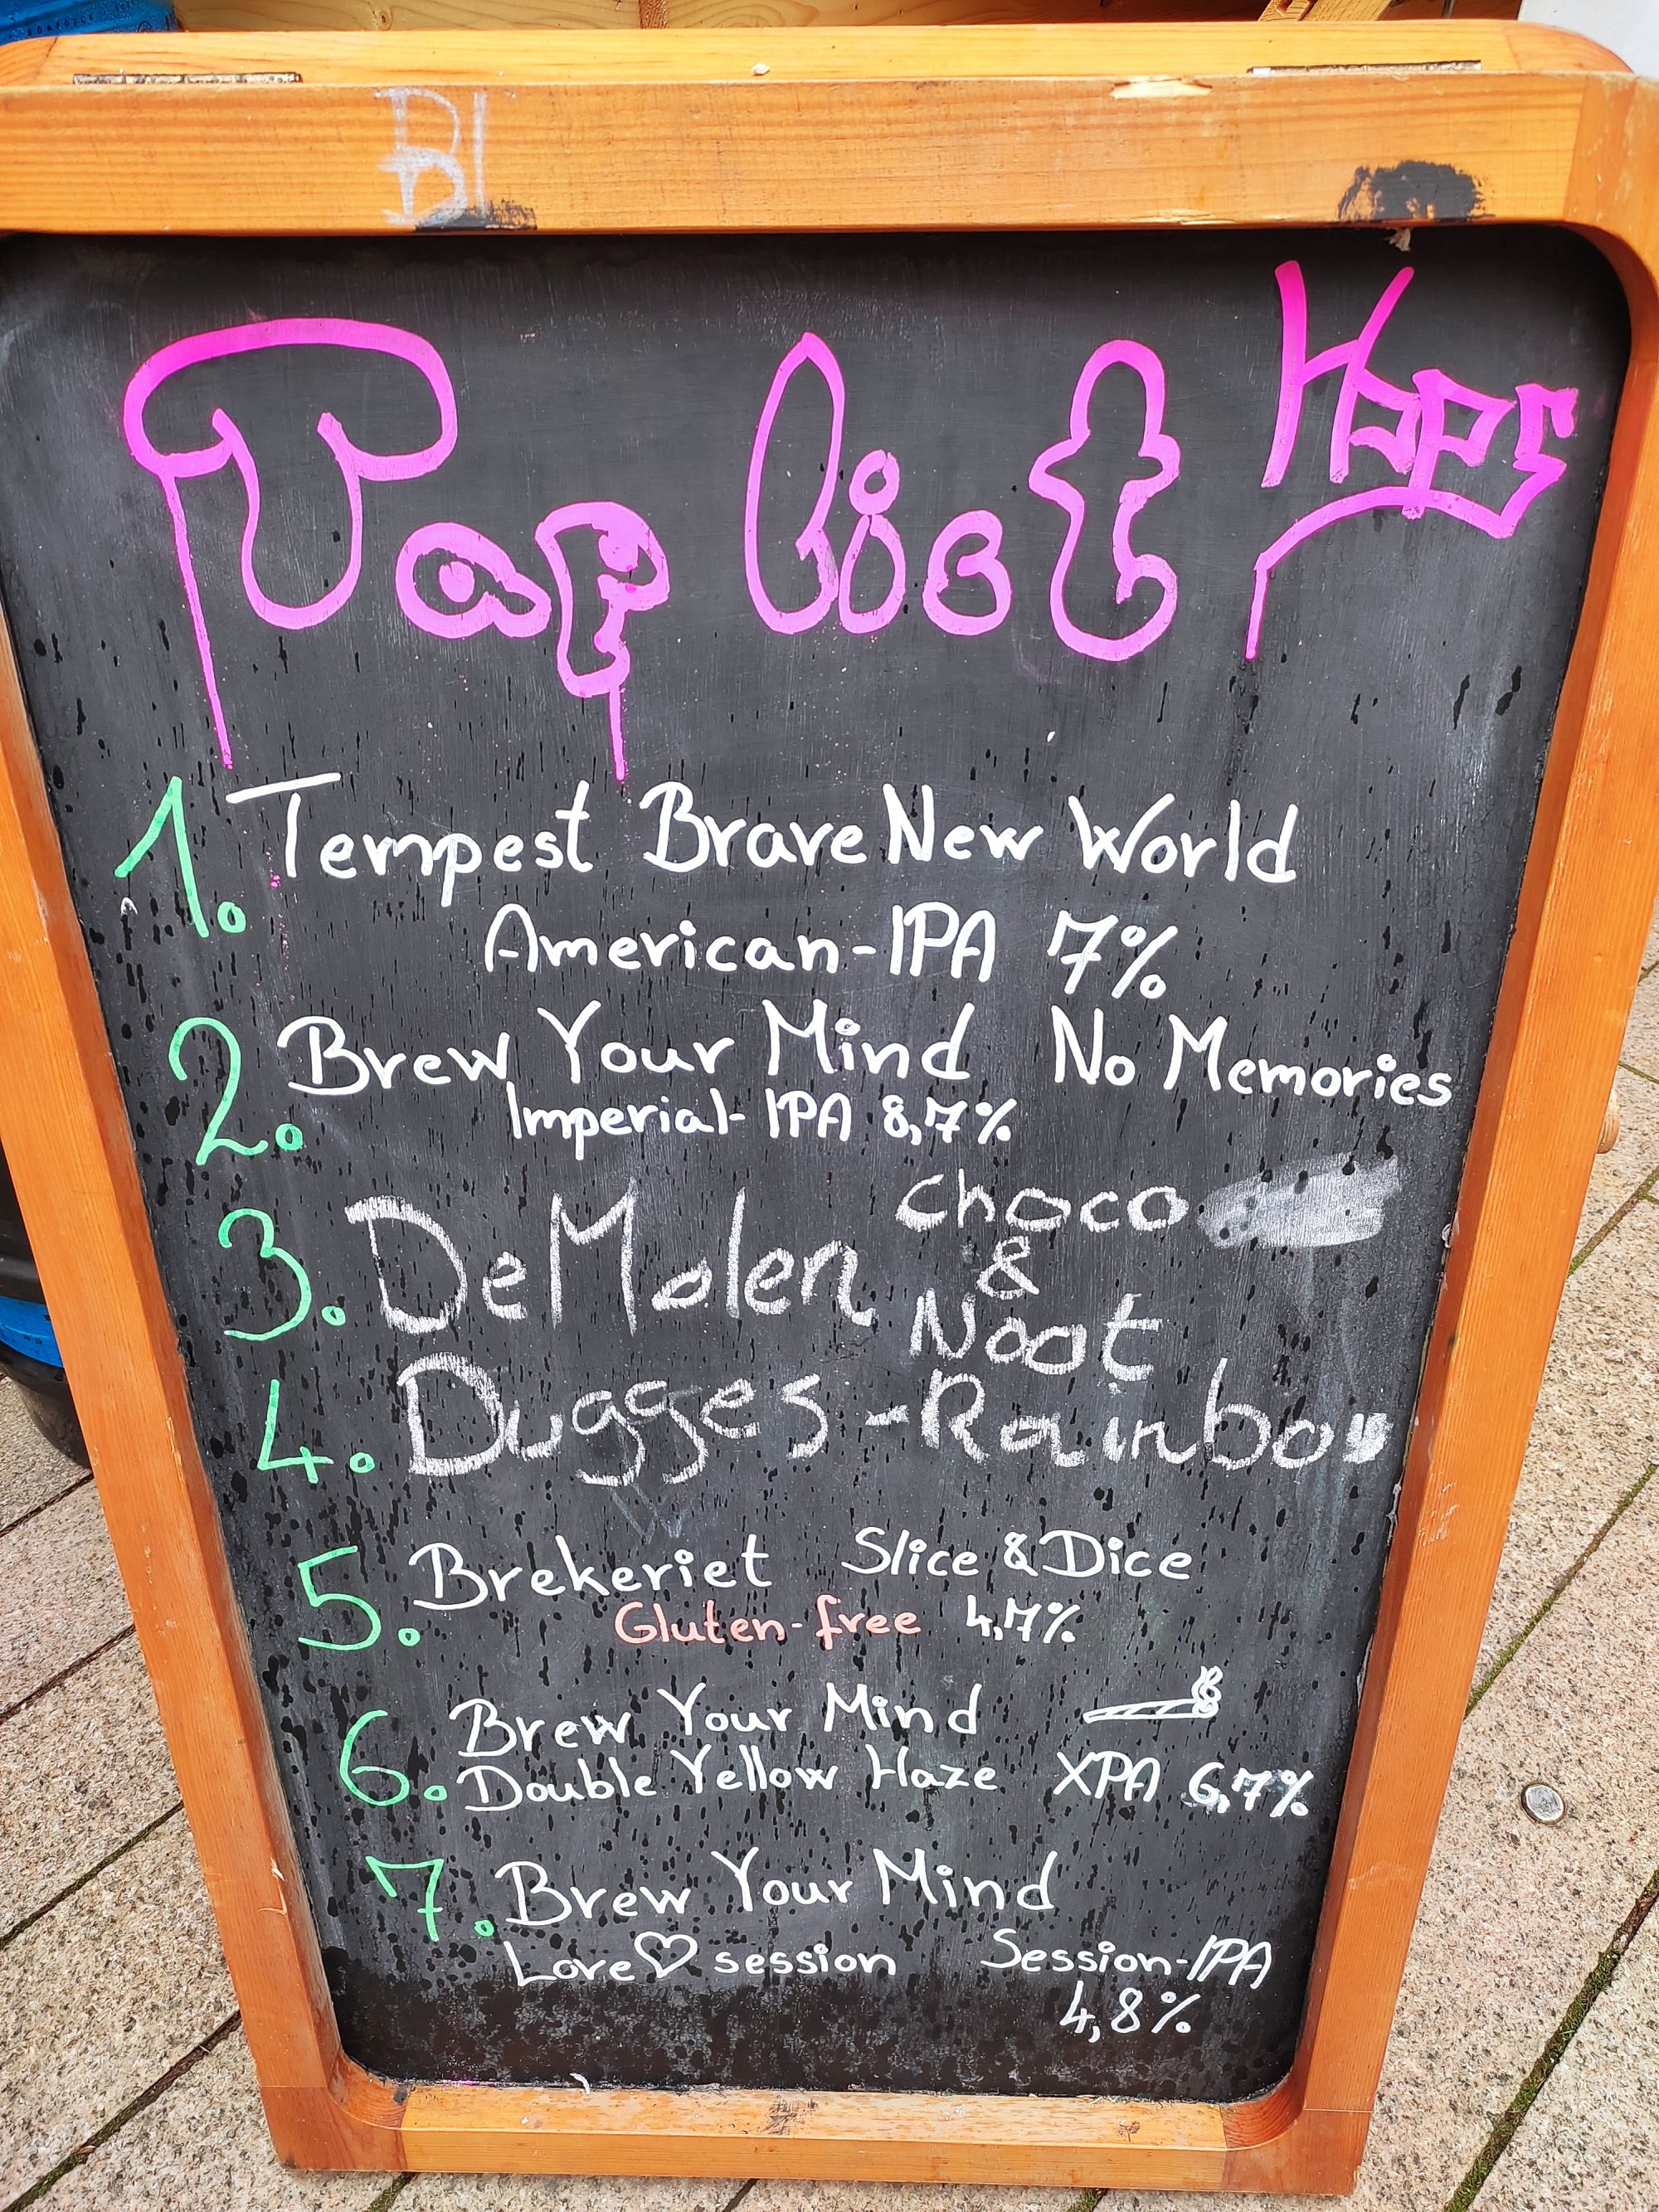 BI
Tap list
1. Tempest Brave New World
American-IPA 7%
2. Brew Your Mind No Memories
Imperial-IPA 8,7%
3. DeMolen choco
&
Noot
4. Dugges - Rainbow
5. Brekeriet Slice & Dice
Gluten-free 4,7%
6. Brew Your Mind
Double Yellow Haze XPA 6,7%
7. Brew Your Mind
Love ♡ session Session-IPA
4,8%